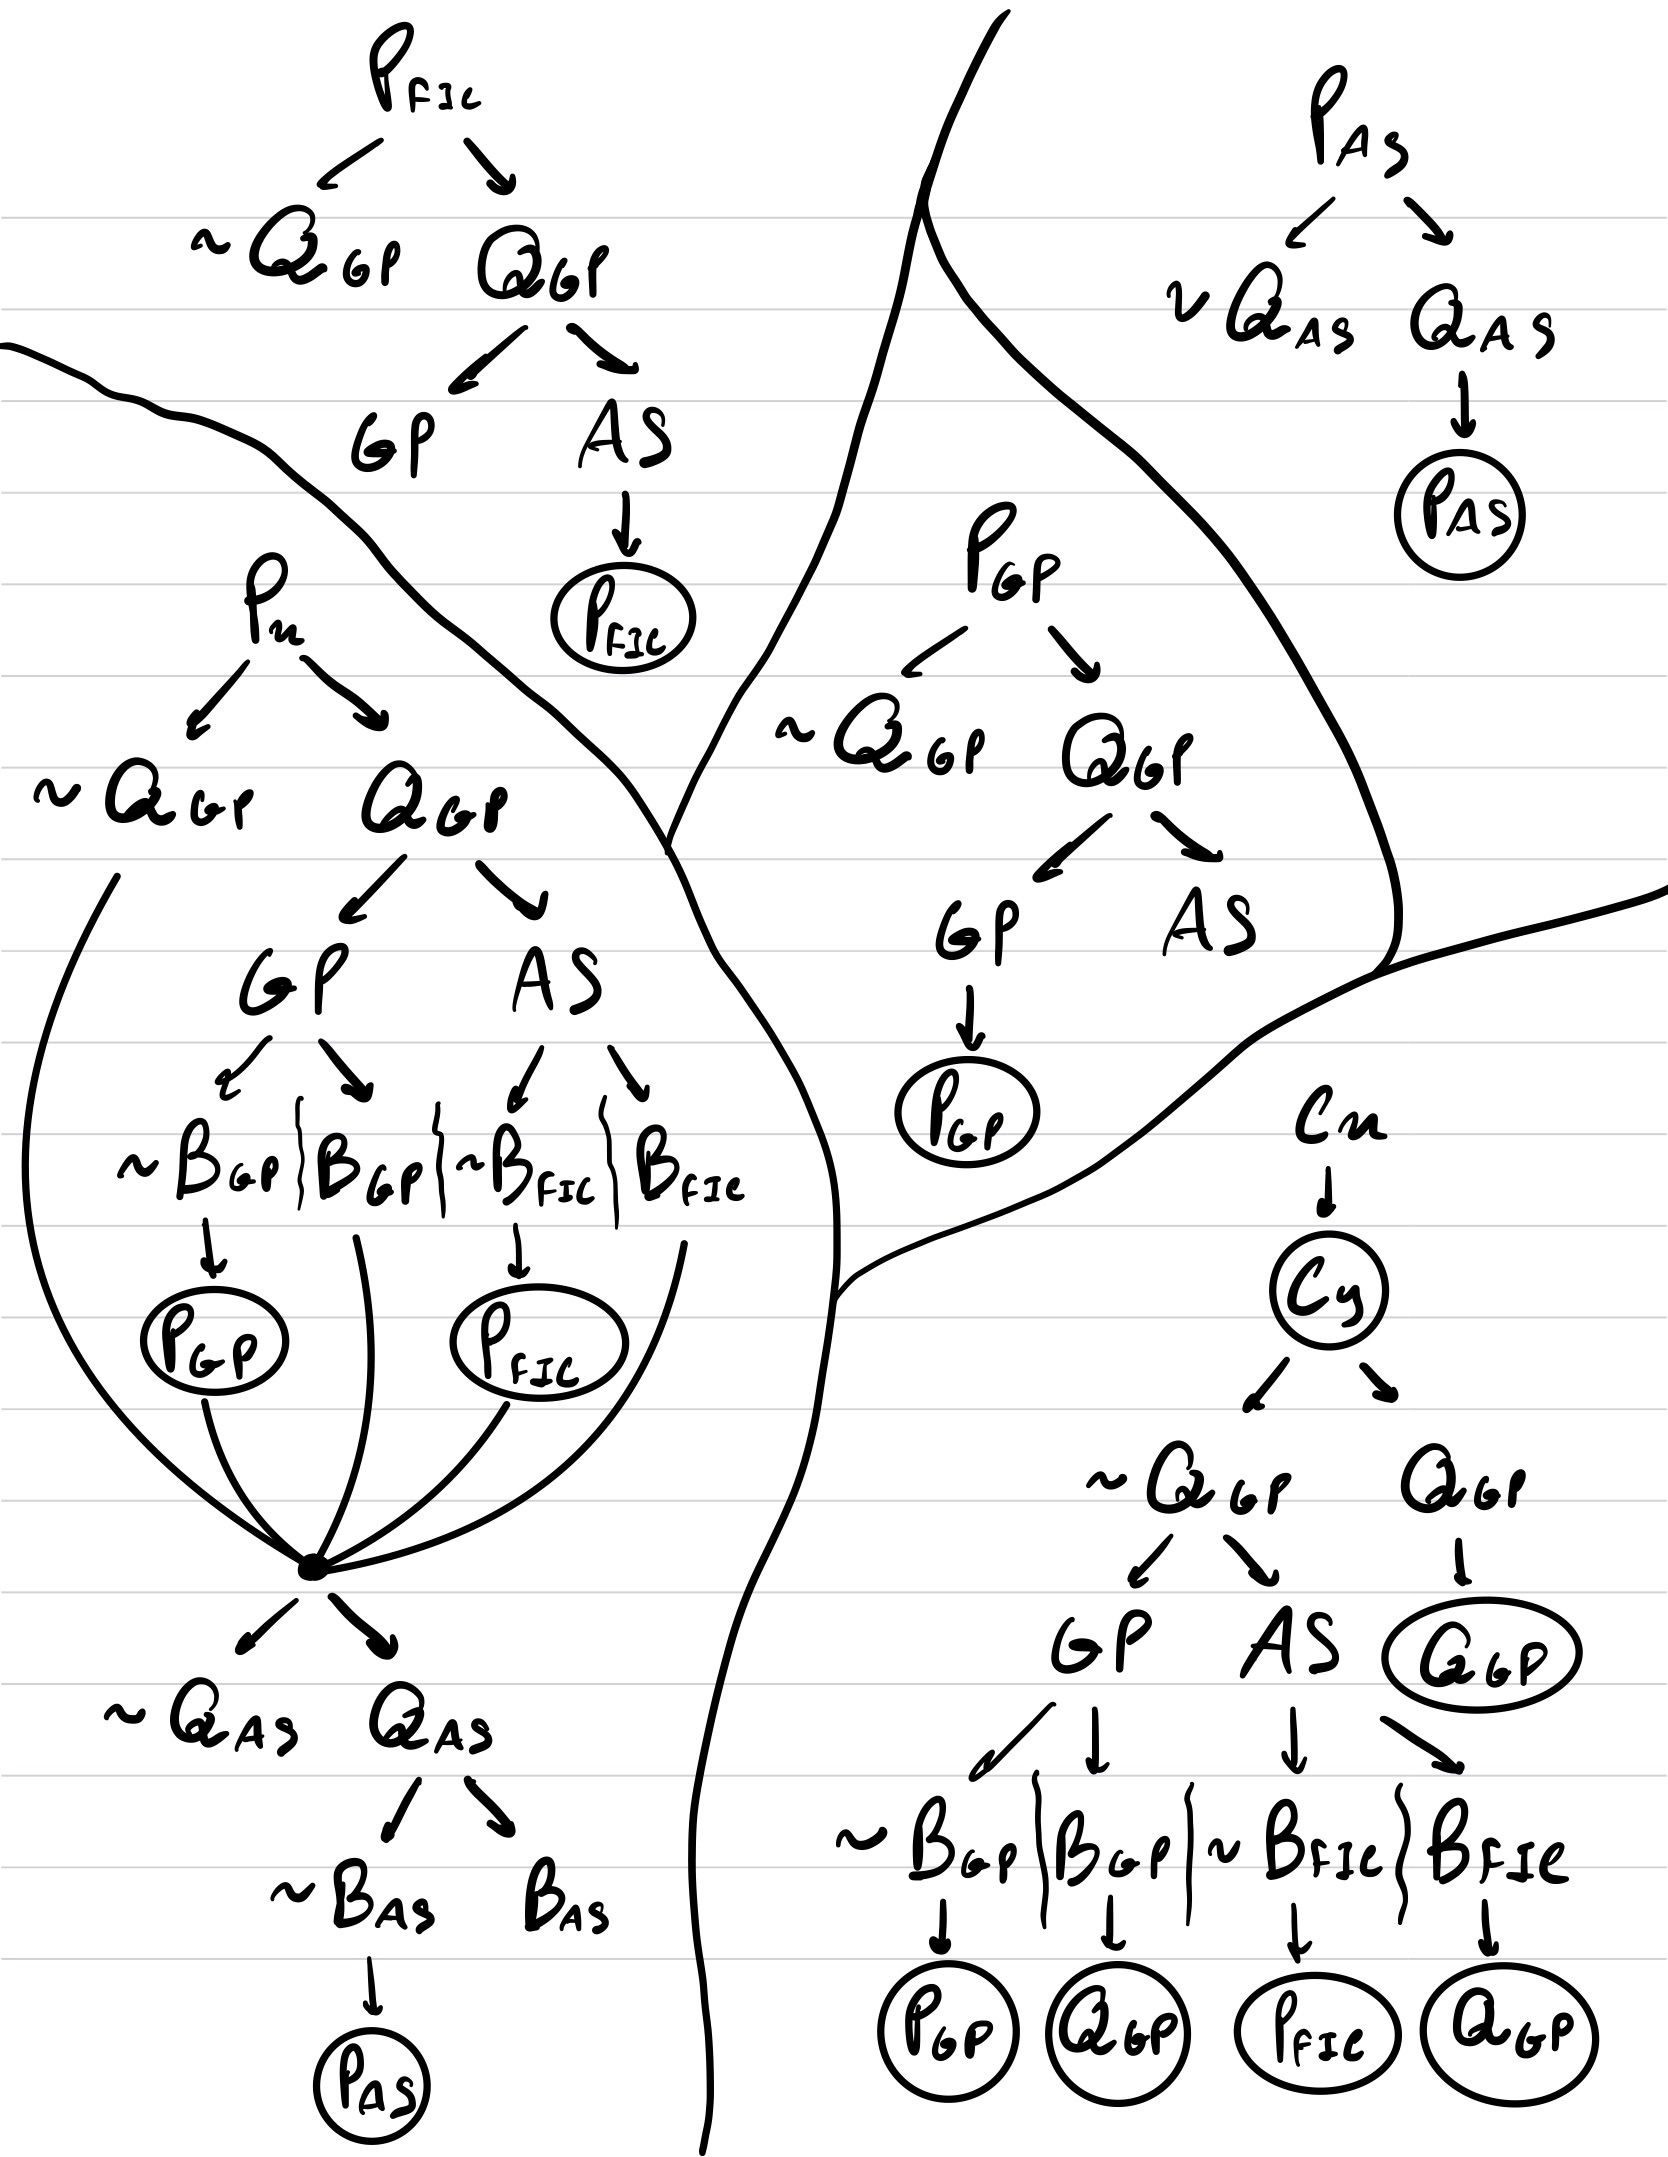 P_FIC
~Q_GP Q_GP
GP AS
P_FIC
P_n
~Q_GP Q_GP
GP AS
~B_GP B_GP ~B_FIC B_FIC
P_GP P_FIC
~Q_AS Q_AS
~B_AS B_AS
P_AS
P_GP
~Q_GP Q_GP
GP AS
P_GP
P_AS
~Q_AS Q_AS
P_AS
Cn
Cy
~Q_GP Q_GP
GP AS Q_GP
~B_GP B_GP ~B_FIC B_FIC
P_GP Q_GP P_FIC Q_GP